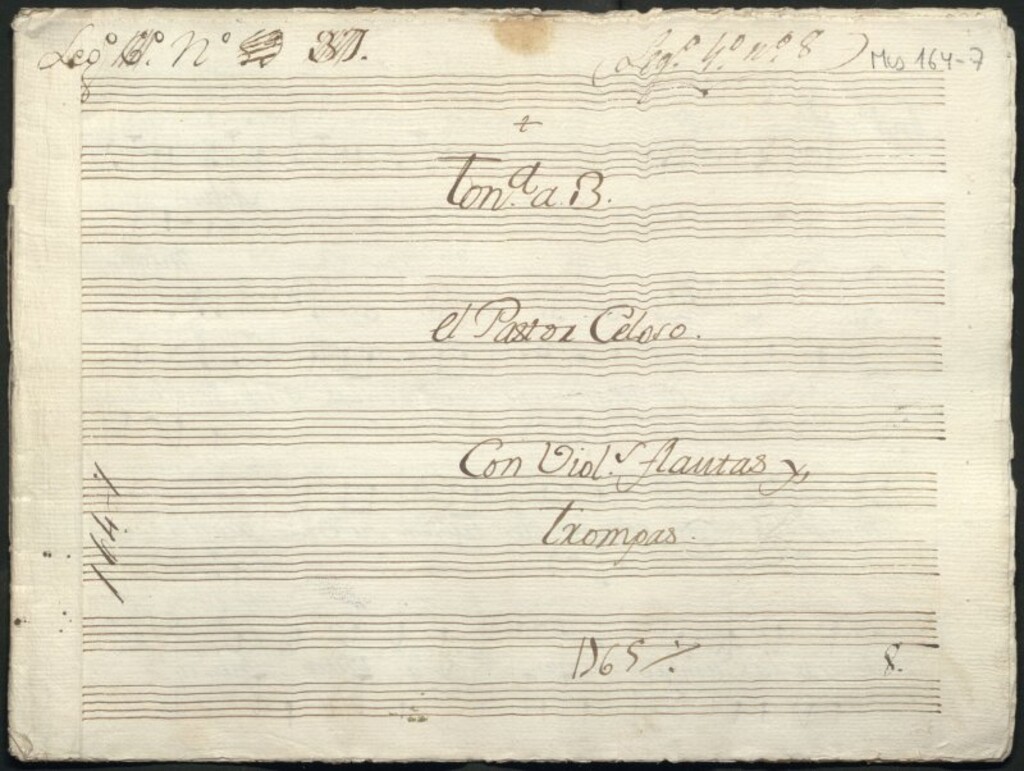 Leg.º Nº
(Leg.º 4.º n.º 8) Mus 164-7
Ton.d a. 3.
el Pastor Celoso.
Con Viol.s flautas y,
trompas.
164-7
1765
8.